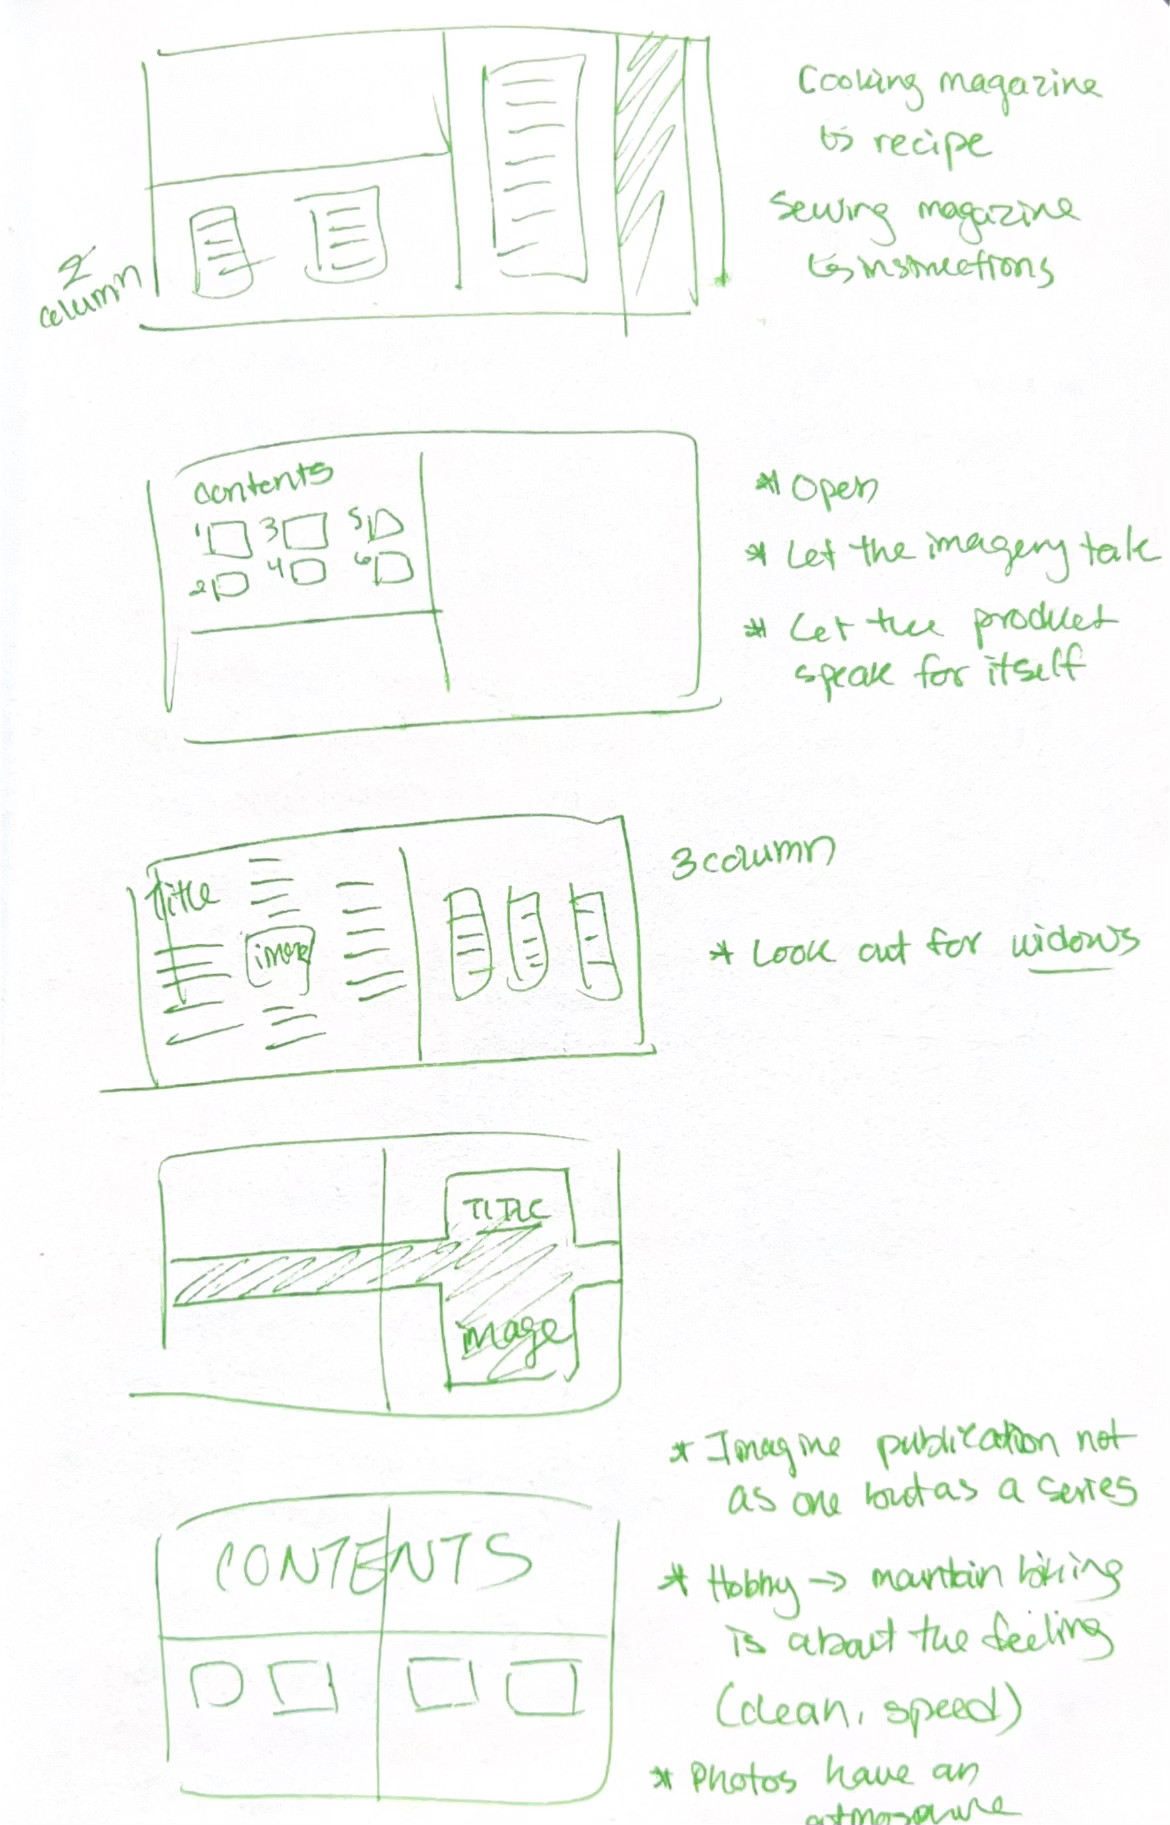 Cooking magazine
↳ recipe
Sewing magazine
↳ instructions
2
column
contents
1 3 5
2 4 6
* Open
* Let the imagery talk
* Let the product
speak for itself
3 column
Title
image
* Look out for widows
TITLE
image
* Imagine publication not
as one but as a series
CONTENTS
* Hobby → mountain biking
is about the feeling
(clean, speed)
* Photos have an
atmosphere